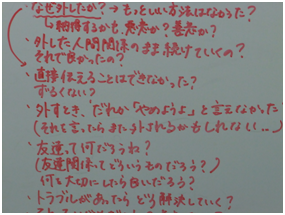 ・なぜ外したか？→もっといい方法はなかった？
↳納得するかも、悪意か？善意か？
・外した人間関係のまま続けていくの？
それで良かったの？
・直接伝えることはできなかった？
ずるくない？
・外すとき、「だれか「やめようよ」と言えなかった？
(それを言ったらまた外されるかもしれない...)
・友達って何だろうね？
(友達関係ってどういうものだろう？)
何を大切にしたら良いだろう？
・トラブルがあったらどう解決していく？